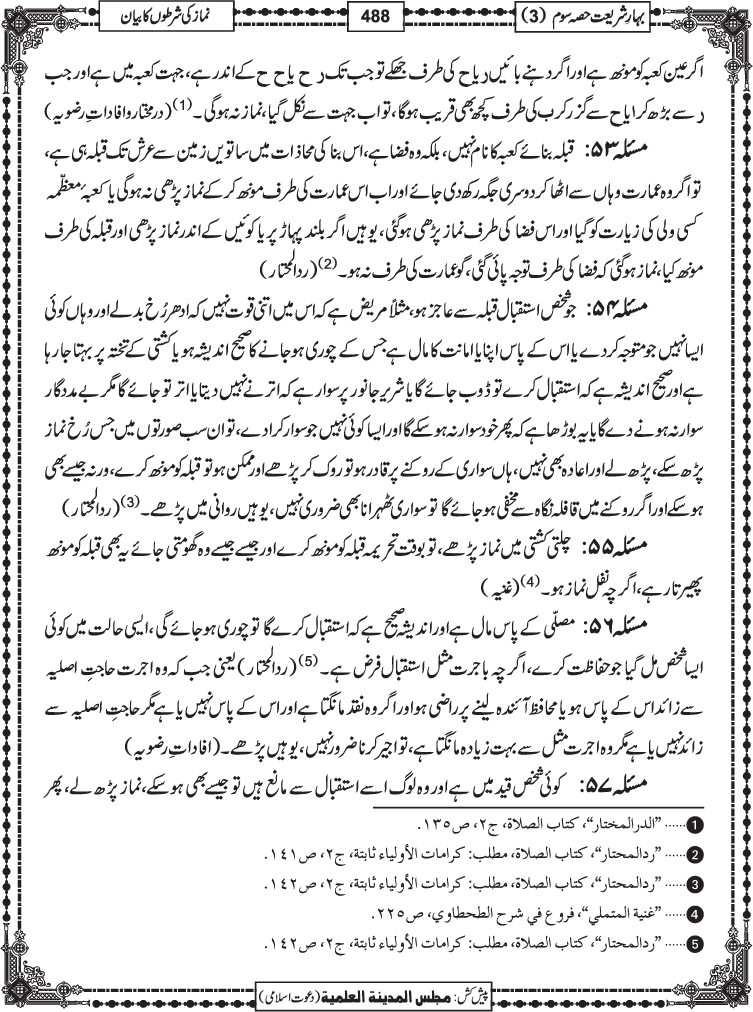 بہار شریعت حصہ سوم (3)
488
نماز کی شرطوں کا بیان
اگر عین کعبہ کو مونھ ہے اور اگر دہنے بائیں د یا ح کی طرف جھکے تو جب تک د ح یا ح ح کے اندر ہے، جہت کعبہ میں ہے اور جب
د سے بڑھ کر ا یا ح سے گزر کر ب کی طرف کچھ بھی قریب ہوگا، تو اب جہت سے نکل گیا، نماز نہ ہوگی ۔ (1) (درمختار و افاداتِ رضویہ)
مسئلہ ۵۳: قبلہ بنائے کعبہ کا نام نہیں، بلکہ وہ فضا ہے، اس بنا کی محاذات میں ساتویں زمین سے عرش تک قبلہ ہی ہے،
تو اگر وہ عمارت وہاں سے اٹھا کر دوسری جگہ رکھ دی جائے اور اب اس عمارت کی طرف مونھ کر کے نماز پڑھی نہ ہوگی یا کعبۂ معظّمہ
کسی ولی کی زیارت کو گیا اور اس فضا کی طرف نماز پڑھی ہوگئی، یوہیں اگر بلند پہاڑ پر یا کوئیں کے اندر نماز پڑھی اور قبلہ کی طرف
مونھ کیا، نماز ہوگئی کہ فضا کی طرف توجہ پائی گئی، گو عمارت کی طرف نہ ہو۔ (2) (ردالمحتار)
مسئلہ ۵۴: جو شخص استقبال قبلہ سے عاجز ہو، مثلاً مریض ہے کہ اس میں اتنی قوت نہیں کہ ادھر رُخ بدلے اور وہاں کوئی
ایسا نہیں جو متوجہ کر دے یا اس کے پاس اپنا یا امانت کا مال ہے جس کے چوری ہو جانے کا صحیح اندیشہ ہو یا کشتی کے تختہ پر بہتا جا رہا
ہے اور صحیح اندیشہ ہے کہ استقبال کرے تو ڈوب جائے گا یا شریر جانور پر سوار ہے کہ اترنے نہیں دیتا یا اتر تو جائے گا مگر بے مددگار
سوار نہ ہونے دے گا یا یہ بوڑھا ہے کہ پھر خود سوار نہ ہو سکے گا اور ایسا کوئی نہیں جو سوار کرا دے، تو ان سب صورتوں میں جس رُخ نماز
پڑھ سکے، پڑھ لے اور اعادہ بھی نہیں، ہاں سواری کے روکنے پر قادر ہو تو روک کر پڑھے اور ممکن ہو تو قبلہ کو مونھ کرے، ورنہ جیسے بھی
ہو سکے اور اگر روکنے میں قافلہ نگاہ سے مخفی ہو جائے گا تو سواری ٹھہرانا بھی ضروری نہیں، یوہیں روانی میں پڑھے۔ (3) (ردالمحتار)
مسئلہ ۵۵: چلتی کشتی میں نماز پڑھے، تو بوقت تحریمہ قبلہ کو مونھ کرے اور جیسے جیسے وہ گھومتی جائے یہ بھی قبلہ کو مونھ
پھیرتا رہے، اگرچہ نفل نماز ہو۔ (4) (غنیہ)
مسئلہ ۵۶: مصلّی کے پاس مال ہے اور اندیشہ صحیح ہے کہ استقبال کرے گا تو چوری ہو جائے گی، ایسی حالت میں کوئی
ایسا شخص مل گیا جو حفاظت کرے، اگرچہ باجرت مثل استقبال فرض ہے۔ (5) (ردالمحتار) یعنی جب کہ وہ اجرت حاجتِ اصلیہ
سے زائد اس کے پاس ہو یا محافظ آئندہ لینے پر راضی ہو اور اگر وہ نقد مانگتا ہے اور اس کے پاس نہیں یا ہے مگر حاجتِ اصلیہ سے
زائد نہیں یا ہے مگر وہ اجرت مثل سے بہت زیادہ مانگتا ہے، تو اجیر کرنا ضرور نہیں، یوہیں پڑھے۔ (افاداتِ رضویہ)
مسئلہ ۵۷: کوئی شخص قید میں ہے اور وہ لوگ اسے استقبال سے مانع ہیں تو جیسے بھی ہو سکے، نماز پڑھ لے، پھر
1 ...... "الدرالمختار"، کتاب الصلاة، ج۲، ص۱۳۵.
2 ...... "ردالمحتار"، کتاب الصلاة، مطلب: کرامات الأولیاء ثابتة، ج۲، ص۱۴۱.
3 ...... "ردالمحتار"، کتاب الصلاة، مطلب: کرامات الأولیاء ثابتة، ج۲، ص۱۴۲.
4 ...... "غنیة المتملي"، فروع في شرح الطحطاوي، ص۲۲۵.
5 ...... "ردالمحتار"، کتاب الصلاة، مطلب: کرامات الأولیاء ثابتة، ج۲، ص۱۴۲.
پیش کش: مجلس المدینة العلمیة (دعوت اسلامی)